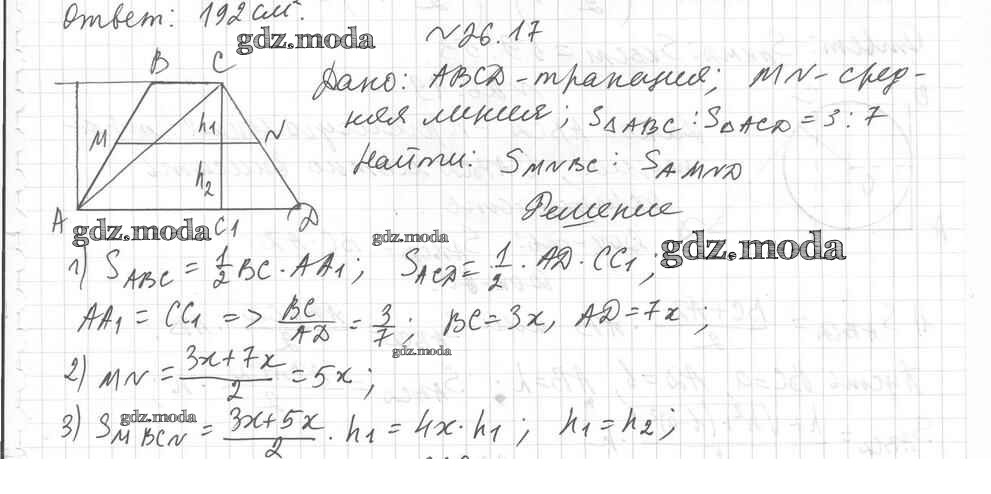 Ответ: 192 см².
gdz.moda
№26.17
B C
Дано: ABCD-трапеция; MN-сред-
няя линия; S△ABC : S△ACD = 3 : 7
M h₁ N
Найти: SMNBC : SAMND
h₂
Решение
A C₁ D
gdz.moda gdz.moda gdz.moda
1) SABC = 1/2 BC · AA₁; SACD = 1/2 · AD · CC₁;
AA₁ = CC₁ => BC/AD = 3/7; BC = 3x, AD = 7x;
gdz.moda
2) MN = (3x+7x)/2 = 5x;
gdz.moda
3) SMBCN = (3x+5x)/2 · h₁ = 4x · h₁; h₁ = h₂;